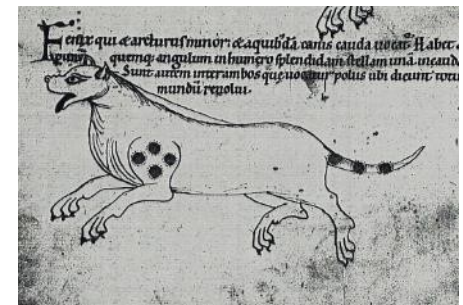 Fenix qui & arcturus minor: & a quibꝰdā canis cauda uocat᷑. Habet
quemq; angulum in humero splendidam stellam unā. in cauda
Sunt autem inter ambos que uocatur polus ubi dicunt totū
mundū reuolui.